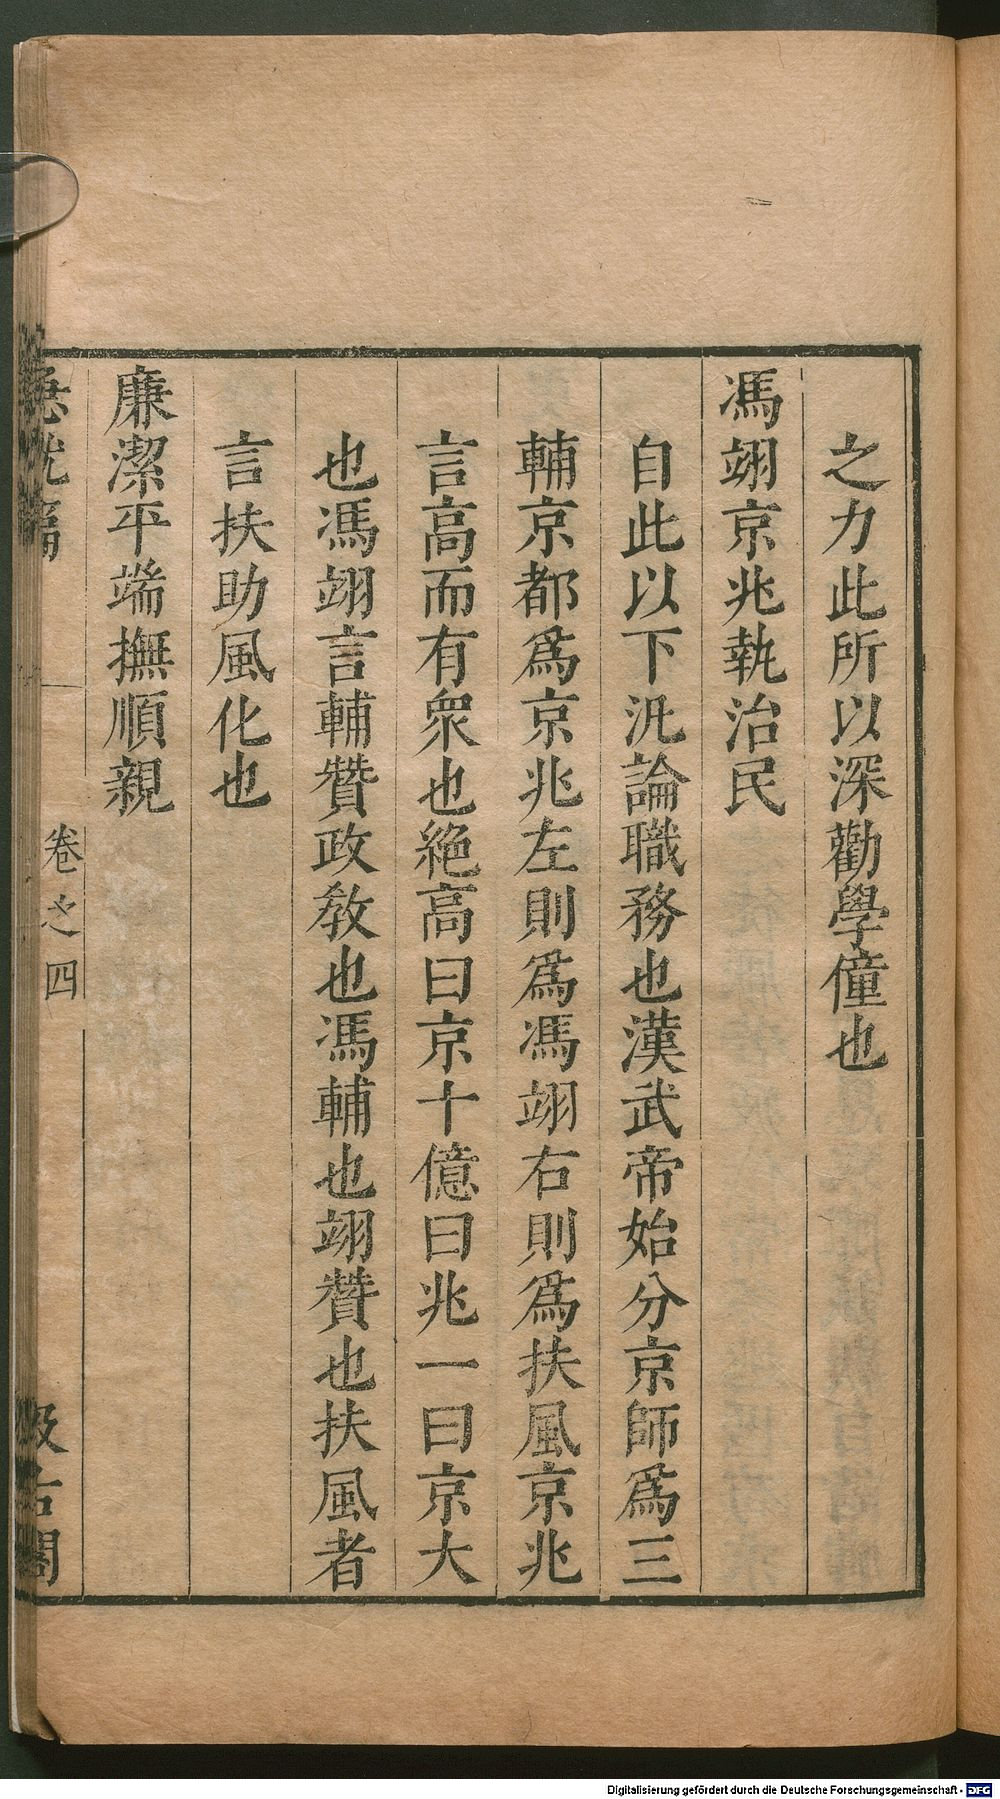 之力此所以深勸學僮也
馮翊京兆執治民
自此以下汎論職務也漢武帝始分京師爲三
輔京都爲京兆左則爲馮翊右則爲扶風京兆
言高而有衆也絶高曰京十億曰兆一曰京大
也馮翊言輔贊政敎也馮輔也翊贊也扶風者
言扶助風化也
廉潔平端撫順親
急就篇 卷之四 汲古閣
Digitalisierung gefördert durch die Deutsche Forschungsgemeinschaft - DFG